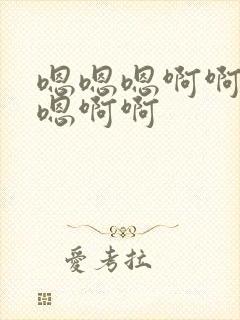 嗯嗯嗯啊啊
嗯啊啊
爱考拉